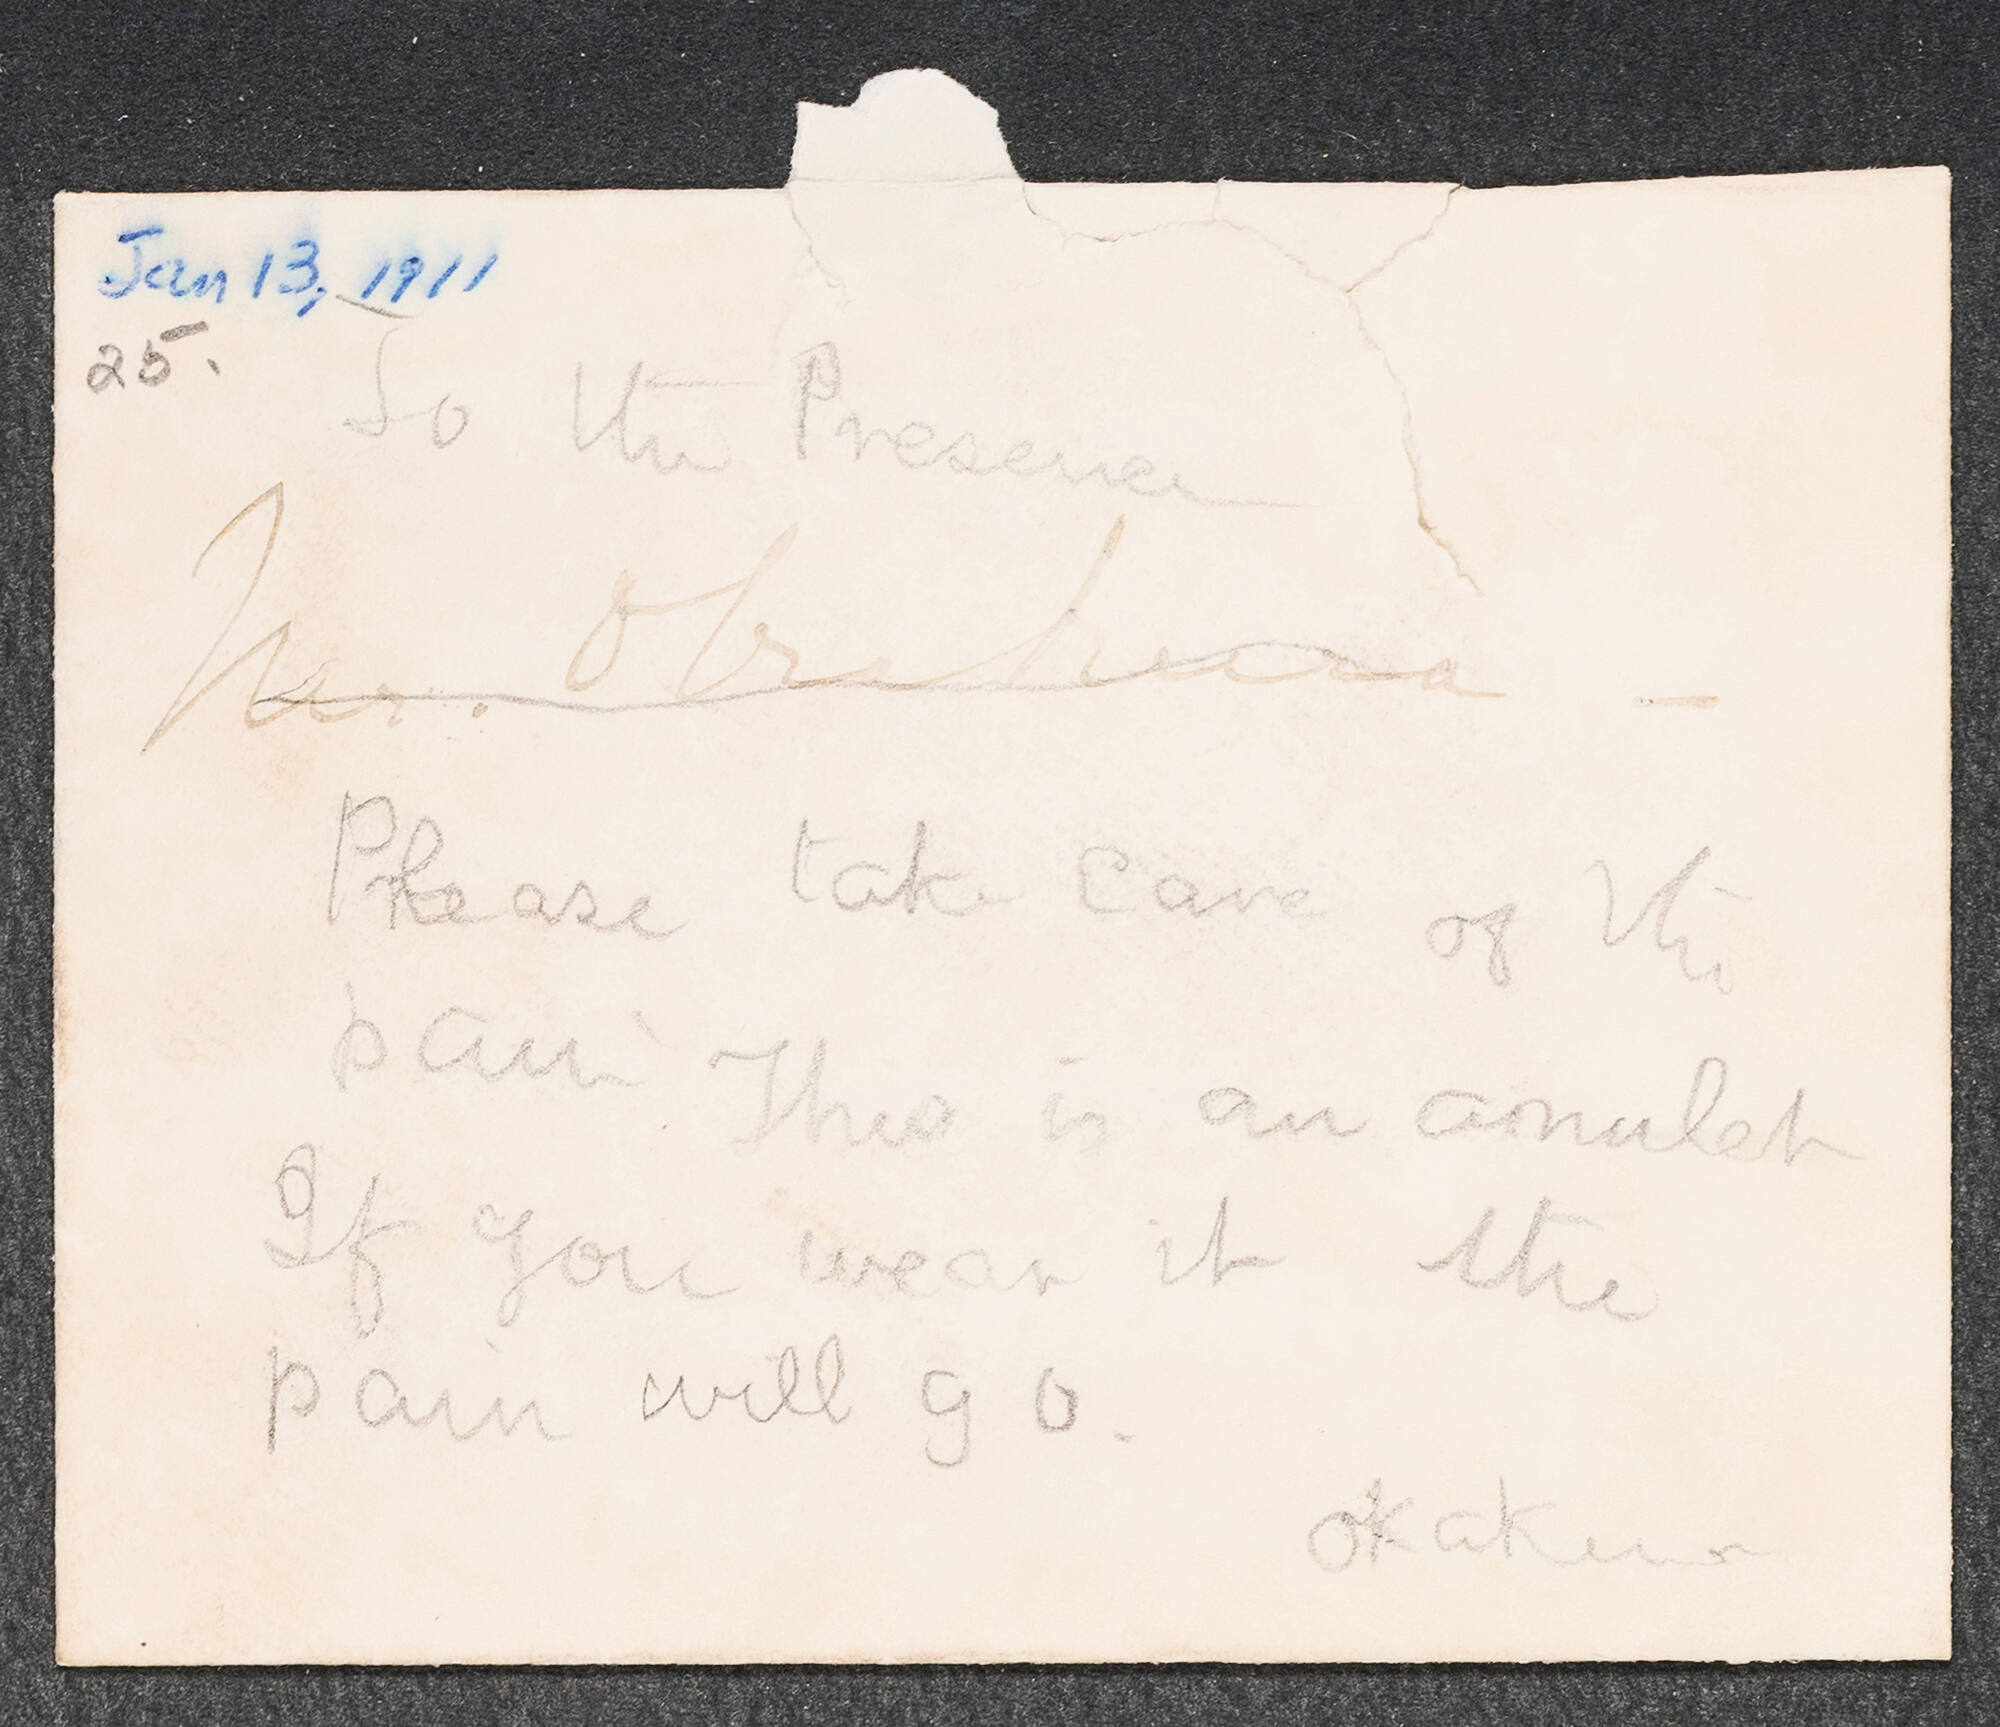 Jan 13, 1911
25.
To the Presence
Mr. Okakura —
Please take care of the
pain. This is an amulet
If you wear it the
pain will go.
Okakura